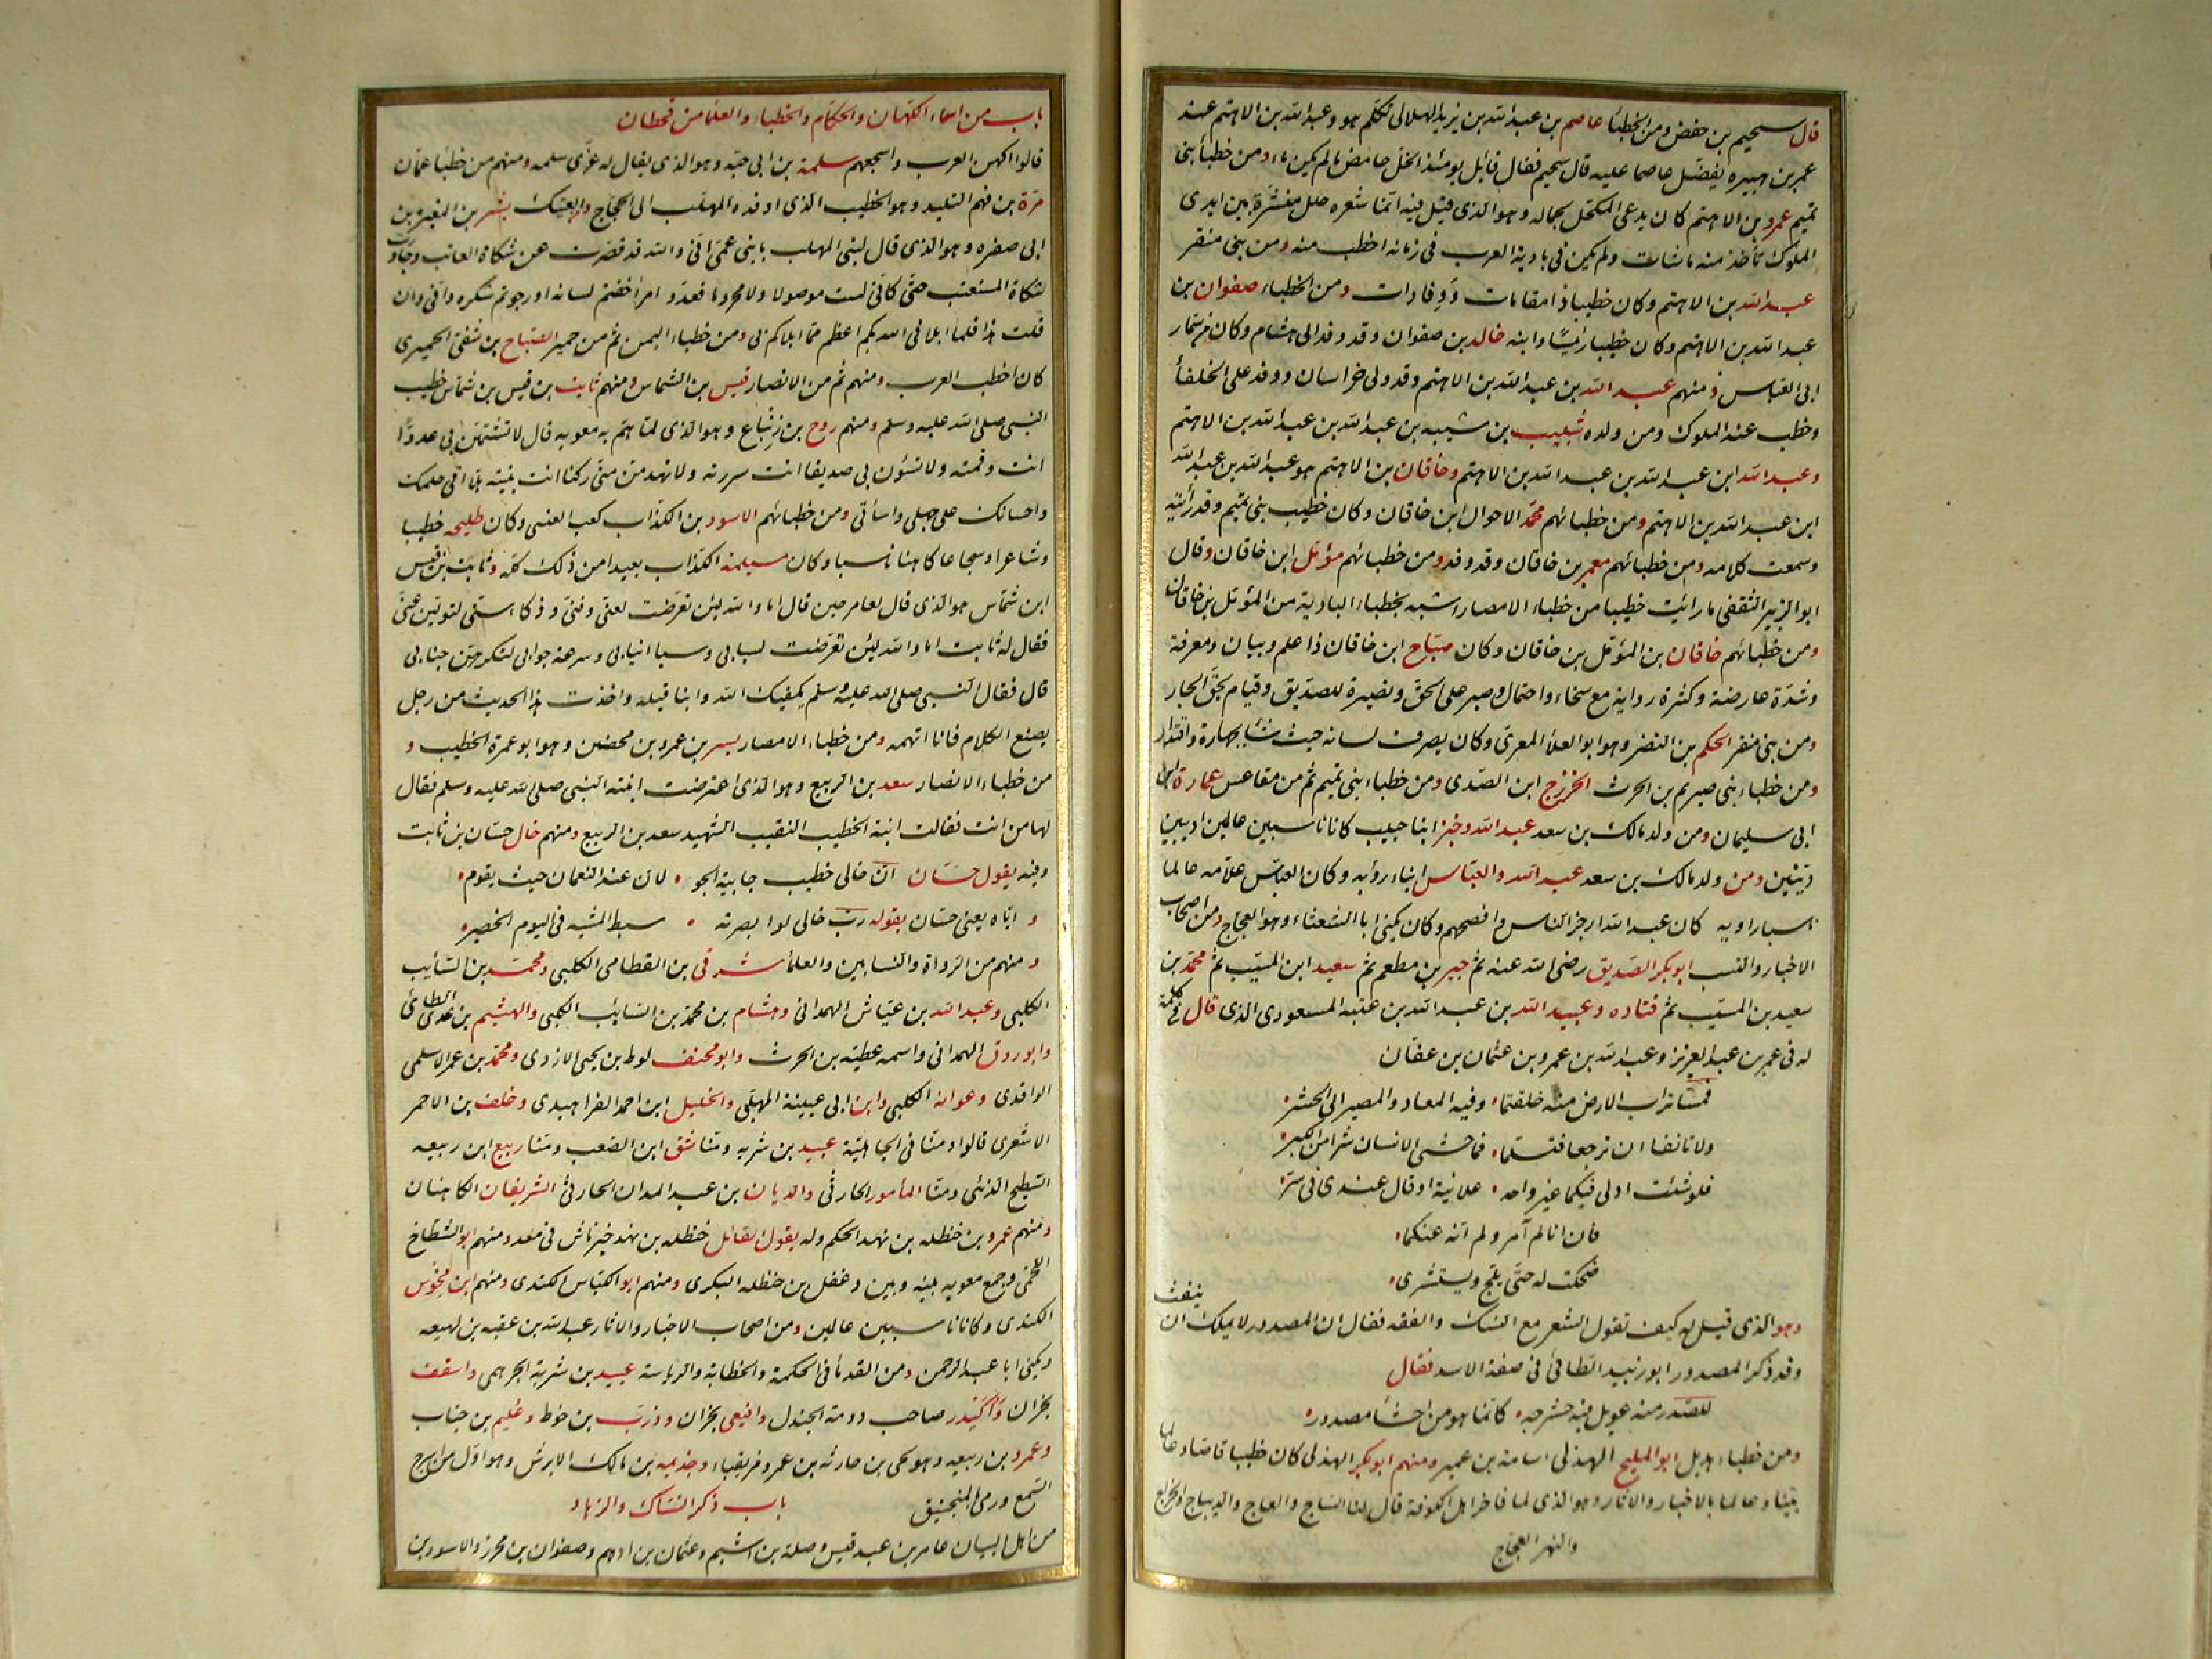 قال سحيم بن حفص ومن الخطباء عاصم بن عبدالله بن يزيد الهلالى تكلم هو وعبدالله بن الاهتم عند
عمر بن هبيره يفضل عاصما عليه قال سحيم فقال قائل يومئذ الخل حامض ما لم يكن ماء ومن خطباء بنى
تميم عمرو بن الاهتم كان يدعى المكحل بجماله وهو الذى قيل فيه انما شعره حلل منشرة بين ايدى
الملوك تأخذ منه ما شات ولم يكن فى بادية العرب فى زمانه اخطب منه ومن بنى منقر
عبدالله بن الاهتم وكان خطيبا ذا مقامات ووفادات ومن الخطباء صفوان بن
عبدالله بن الاهتم وكان خطيبا رئيسا وابنه خالد بن صفوان وقد وفد الى هشام وكان من سمار
ابى العباس ومنهم عبدالله بن عبدالله بن الاهتم وقد ولى خراسان ووفد على الخلفأ
وخطب عند الملوك ومن ولده شبيب بن شيبه بن عبدالله بن عبدالله بن الاهتم
وعبدالله ابن عبدالله بن عبدالله بن الاهتم وخاقان بن الاهتم هو عبدالله بن عبدالله
ابن عبدالله بن الاهتم ومن خطبائهم محمد الاحوال ابن خاقان وكان خطيب بنى تميم وقد رأيته
وسمعت كلامه ومن خطبائهم معمر بن خاقان وقد وفد ومن خطبائهم مؤمل ابن خاقان وقال
ابو الزبير الثقفى ما رائيت خطيبا من خطباء الامصار اشبه بخطباء البادية من المؤمل بن خاقان
ومن خطبائهم خاقان بن المؤمل بن خاقان وكان صباح ابن خاقان ذا علم وبيان ومعرفة
وشدة عارضة وكثرة رواية مع سخاء واحتمال وصبر على الحق ونصرة للصديق وقيام بحق الجار
ومن بنى منقر الحكم بن النضر وهو ابو العلأ المعرى وكان يصرف لسانه حيث شأ بجهارة واقتدار
ومن خطباء بنى صريم بن الحرث الخزرج ابن الصدى ومن خطباء بنى تميم ثم من مقاعس عمارة بن
ابى سليمان ومن ولد مالك بن سعد عبدالله وخبر ابنا حبيب كانا ناسبين عالمين اديبين
دينين ومن ولد مالك بن سعد عبدالله والعباس ابناء رؤبه وكان العباس علامه عالما
ناسبا راويه كان عبدالله ارجز الناس وافصحهم وكان يكنى ابا الشعثاء وهو العجاج ومن اصحاب
الاخبار والنسب ابو بكر الصديق رضى الله عنه ثم جبير بن مطعم ثم سعيد ابن المسيب ثم محمد بن
سعيد بن المسيب ثم قتاده وعبيد الله بن عبدالله بن عتبه المسعودى الذى قال فى كلمة
له فى عمر بن عبدالعزيز وعبدالله بن عمرو بن عثمان بن عفان
فمسا تراب الارض منه خلقتما وفيه المعاد والمصير الى الحشر
ولا تانفا ان ترجعا فتسلما فما حشى الانسان شرا من الكبر
فلو شئت ادلى فيكما غير واحد علانية او قال عندى فى سر
فان انا لم آمر ولم انه عنكما
ضحكت له حتى يلج ويستشرى
وهو الذى قيل له كيف تقول الشعر مع النسك والفقه فقال ان المصدور لا يملك ان ينفث
وقد ذكر المصدور ابو زبيد الطائى فى صفة الاسد فقال
للصدر منه عويل فيه حشرجه كانما هو من احشأ مصدور
ومن خطباء هذيل ابو المليح الهذلى اسامة بن عمير ومنهم ابو بكر الهذلى كان خطيبا قاصا وعالما
بينا وعالما بالاخبار والاثار وهو الذى لما فاخر اهل الكوفة قال لنا الساج والعاج والديباج والخراج
والنهر العجاج
باب من اسماء الكهان والحكام والخطباء والعلمأ من قحطان
قالوا اكهن العرب واسجعهم سلمة بن ابى حيه وهو الذى يقال له عزى سلمه ومنهم من خطبأ عمان
مرة بن فهم التليد وهو الخطيب الذى اوفده المهلب الى الحجاج والعتيك بشر بن المغيرة بن
ابى صفره وهو الذى قال لبنى المهلب يا بنى عمى انى والله قد قصرت عن شكاة العاتب وجاوزت
شكاة المستعتب حتى كانى لست موصولا ولا محروما فعدو امرأ خفتم لسانه او رجوتم شكره وانى وان
قلت هذا فلما ابلانى الله بكم اعظم مما ابلاكم بى ومن خطباء اليمن ثم من حمير الصباح بن شفى الحميرى
كان اخطب العرب ومنهم ثم من الانصار قيس بن الشماس ومنهم ثابت بن قيس بن شماس خطيب
النبى صلى الله عليه وسلم ومنهم روح بن زنباع وهو الذى لما هم به معويه قال لا تشتمن بى عدوا
انت وقمته ولا تسؤن بى صديقا انت سررته ولا تهدمن منى ركنا انت بنيته هلا اتى حلمك
واحسانك على جهلى واسأتى ومن خطبائهم الاسود بن الكذاب كعب العنسى وكان طليحه خطيبا
وشاعرا وسجاعا كاهنا ناسبا وكان مسيلمة الكذاب بعيدا من ذلك كله وثابت بن قيس
ابن شماس هو الذى قال لعامر حين قال اما والله لئن تعرضت لعنى وفنى وذكا سنى لتولين عنى
فقال له ثابت اما والله لئن تعرضت لسبابى وسبا انيابى وسرعة جوابى لتكرهن جنابى
قال فقال النبى صلى الله عليه وسلم يكفيك الله وابنا قيله واخذت هذا الحديث من رجل
يصنع الكلام فانا اتهمه ومن خطباء الامصار بسر بن عمرو بن محصن وهو ابو عمرة الخطيب و
من خطباء الانصار سعد بن الربيع وهو الذى اعترضت ابنته النبى صلى الله عليه وسلم فقال
لها من انت فقالت ابنة الخطيب النقيب الشهيد سعد بن الربيع ومنهم خال حسان بن ثابت
وفيه يقول حسان ان خالى خطيب جابية الجو لان عند النعمان حيث يقوم
و اياه يعنى حسان بقوله رب خالى لوا بصرته سبط المشيه فى اليوم الخصر
ومنهم من الرواة والنسابين والعلمأ شرقى بن القطامى الكلبى ومحمد بن السائب
الكلبى وعبدالله بن عياش الهمدانى وهشام بن محمد بن السائب الكلبى والهيثيم بن عدى الطائى
وابو روق الهمدانى واسمه عطيه بن الحرث وابو مخنف لوط بن يحيى الازدى ومحمد بن عمر الاسلمى
الواقدى وعوانة الكلبى وابن ابى عيينة المهلبى والخليل ابن احمد الفراهيدى وخلف بن الاحمر
الاشعرى قالوا ومنا فى الجاهلية عبيد بن شريه ومنا شق ابن الصعب ومنا ربيع ابن ربيعه
السطيح الذئبى ومنا المأمور الحارثى والديان بن عبدالمدان الحارثى الشريفان الكاهنان
ومنهم عمرو بن حنظله بن نهد الحكم وله يقول القائل حنظله بن نهد خير ناش فى معد ومنهم ابو الشطاح
اللخمى وجمع معويه بينه وبين دغفل بن حنظله البكرى ومنهم ابو الكباس الكندى ومنهم ابن مخوس
الكندى وكانا ناسبين عالمين ومن اصحاب الاخبار والاثار عبدالله بن عقبه بن لهيعه
ويكنى ابا عبدالرحمن ومن القدمأ فى الحكمة والخطابة والرياسة عبيد بن شرية الجرهمى واسقف
نجران واكيدر صاحب دومة الجندل وافيعى نجران وذرب بن حوط وعليم بن جناب
وعمرو بن ربيعه وهو لحى بن حارثه بن عمرو مزيقياء وجذيمه بن مالك الابرش وهو اول من اسرج
الشمع ورمى بالمنجنيق باب ذكر النساك والزهاد
من اهل البيان عامر بن عبد قيس وصلة بن اشيم وعثمان بن ادهم وصفوان بن محرز والاسود بن